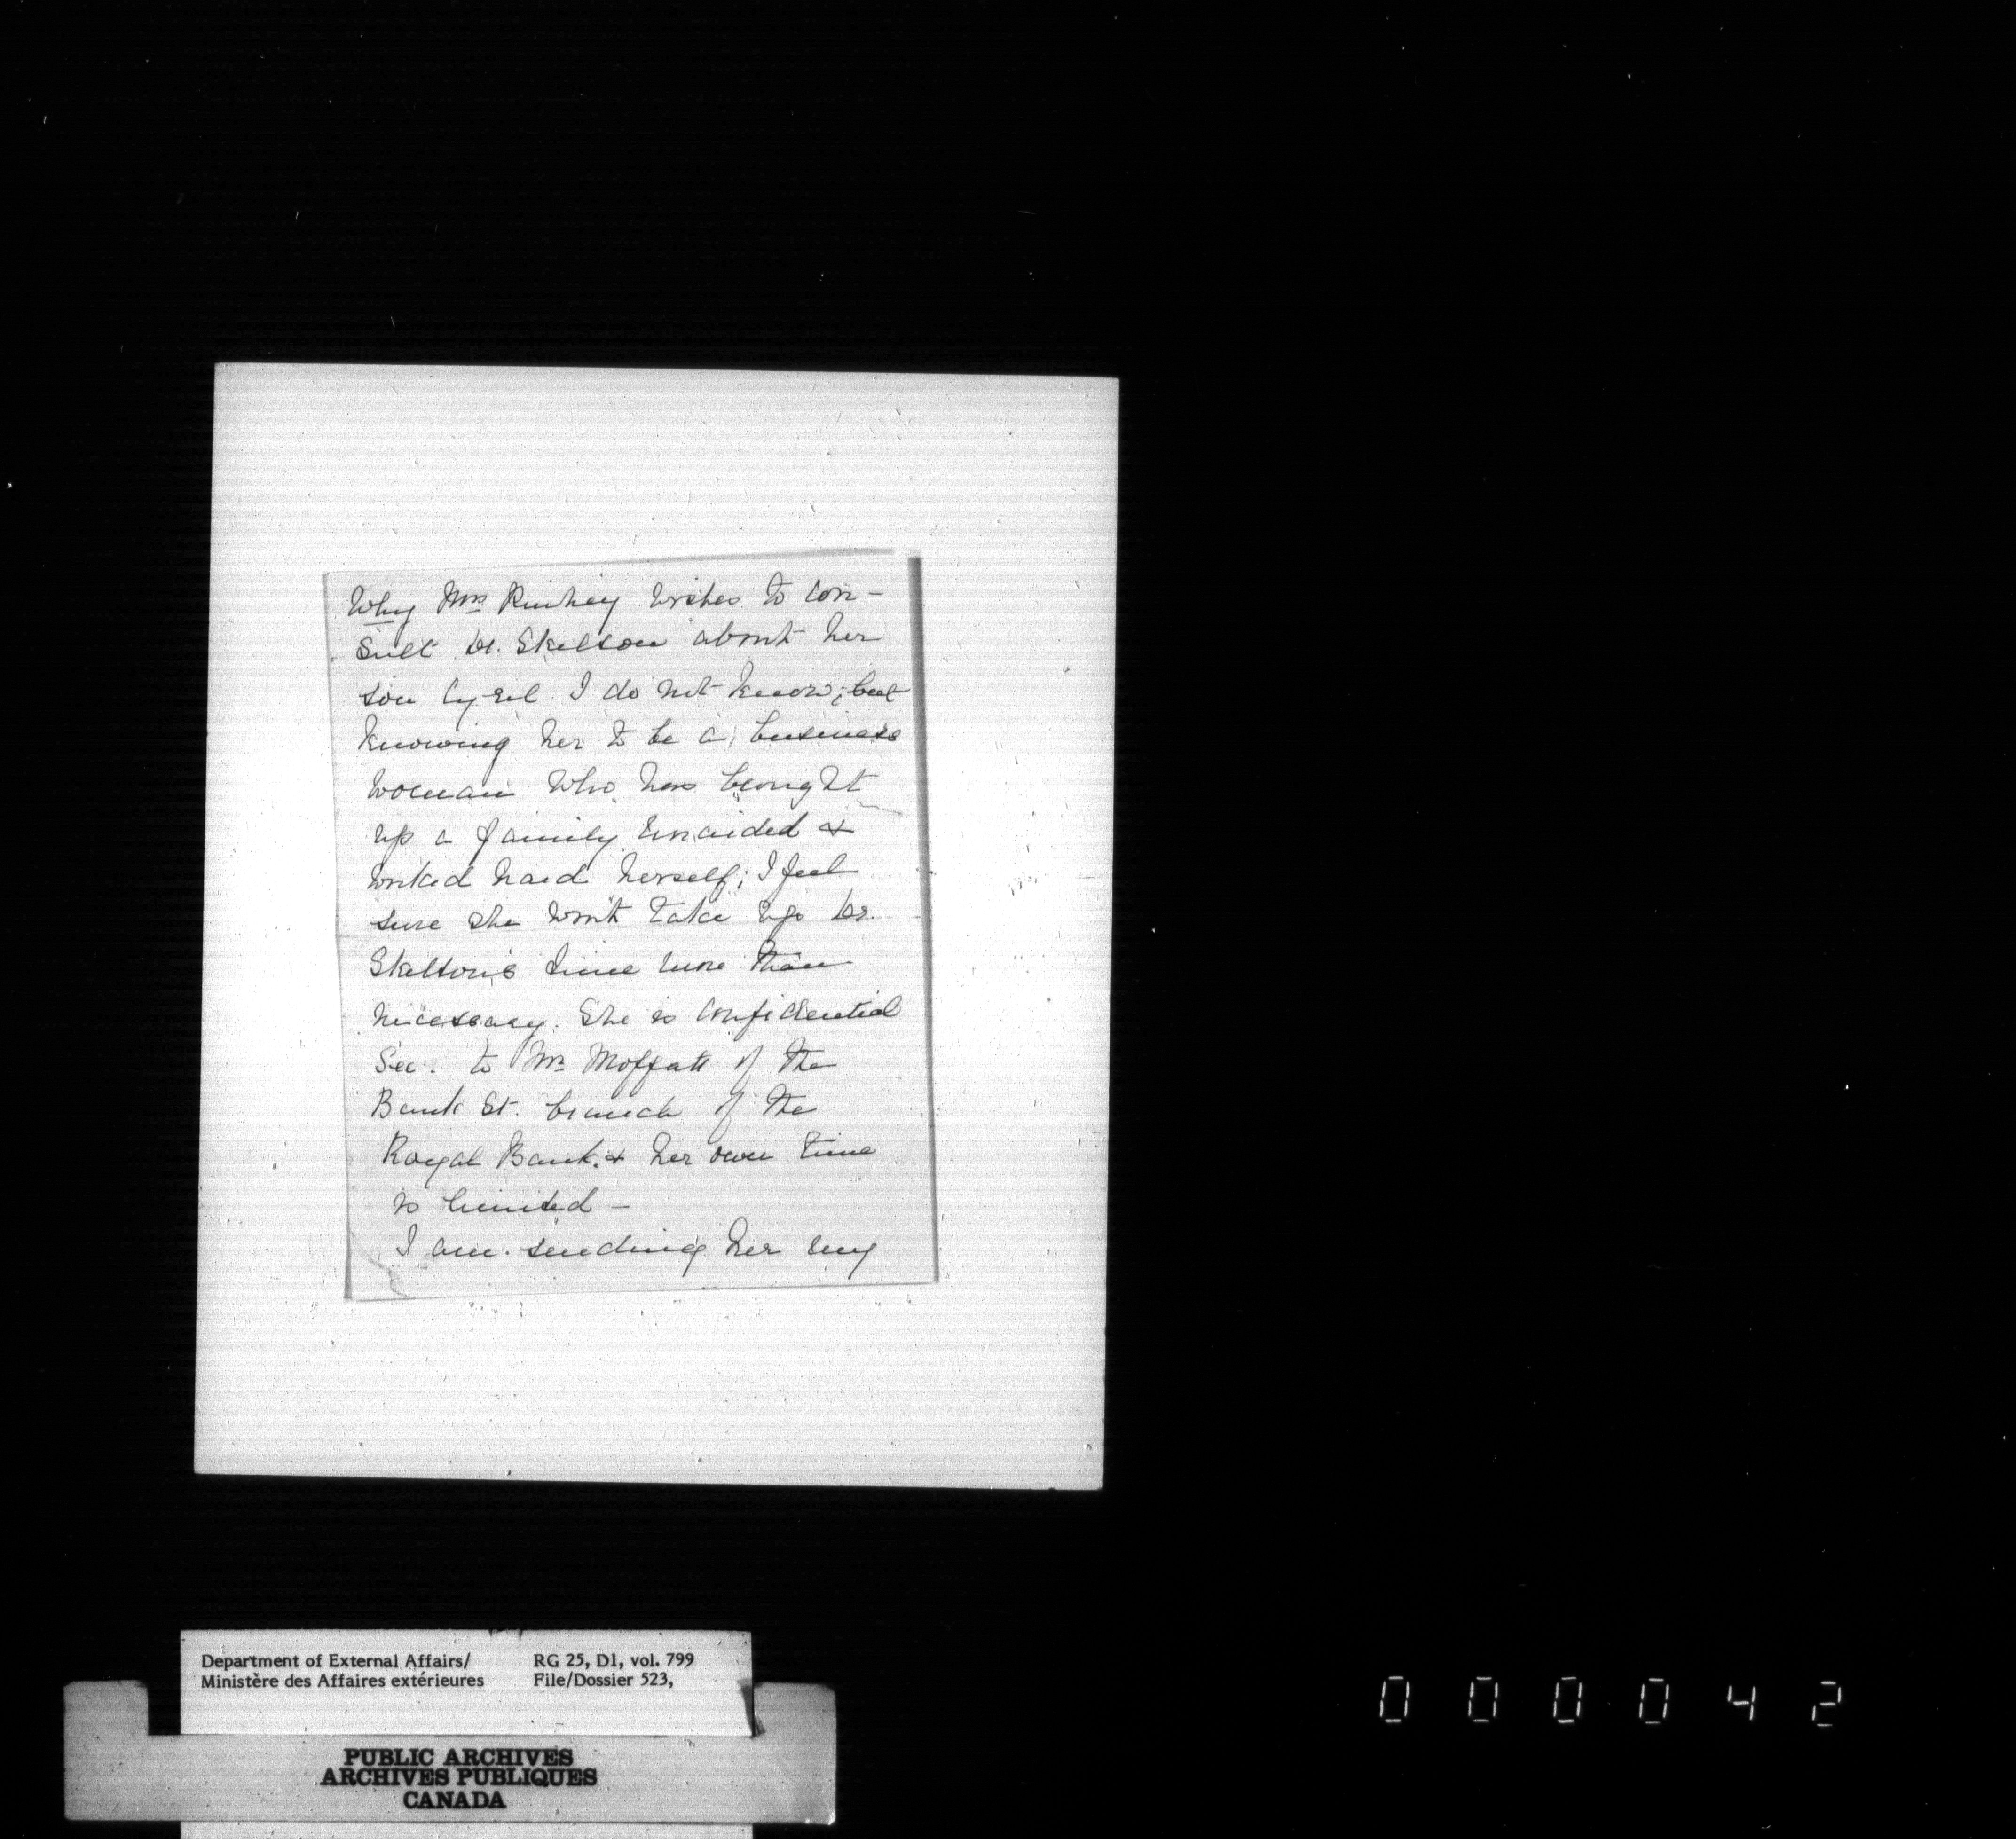 Why Mrs Rinkey wishes to con-
sult Dr. Skelton about her
son Cyril I do not know; but
knowing her to be a business
woman who has brought
up a family unaided &
worked hard herself; I feel
sure she won't take up Dr.
Skelton's time more than
necessary. She is confidential
Sec. to Mr Moffatt of the
Bank St. branch of the
Royal Bank. & her own time
is limited –
I am sending her my
Department of External Affairs/
Ministère des Affaires extérieures
RG 25, D1, vol. 799
File/Dossier 523,
PUBLIC ARCHIVES
ARCHIVES PUBLIQUES
CANADA
000042